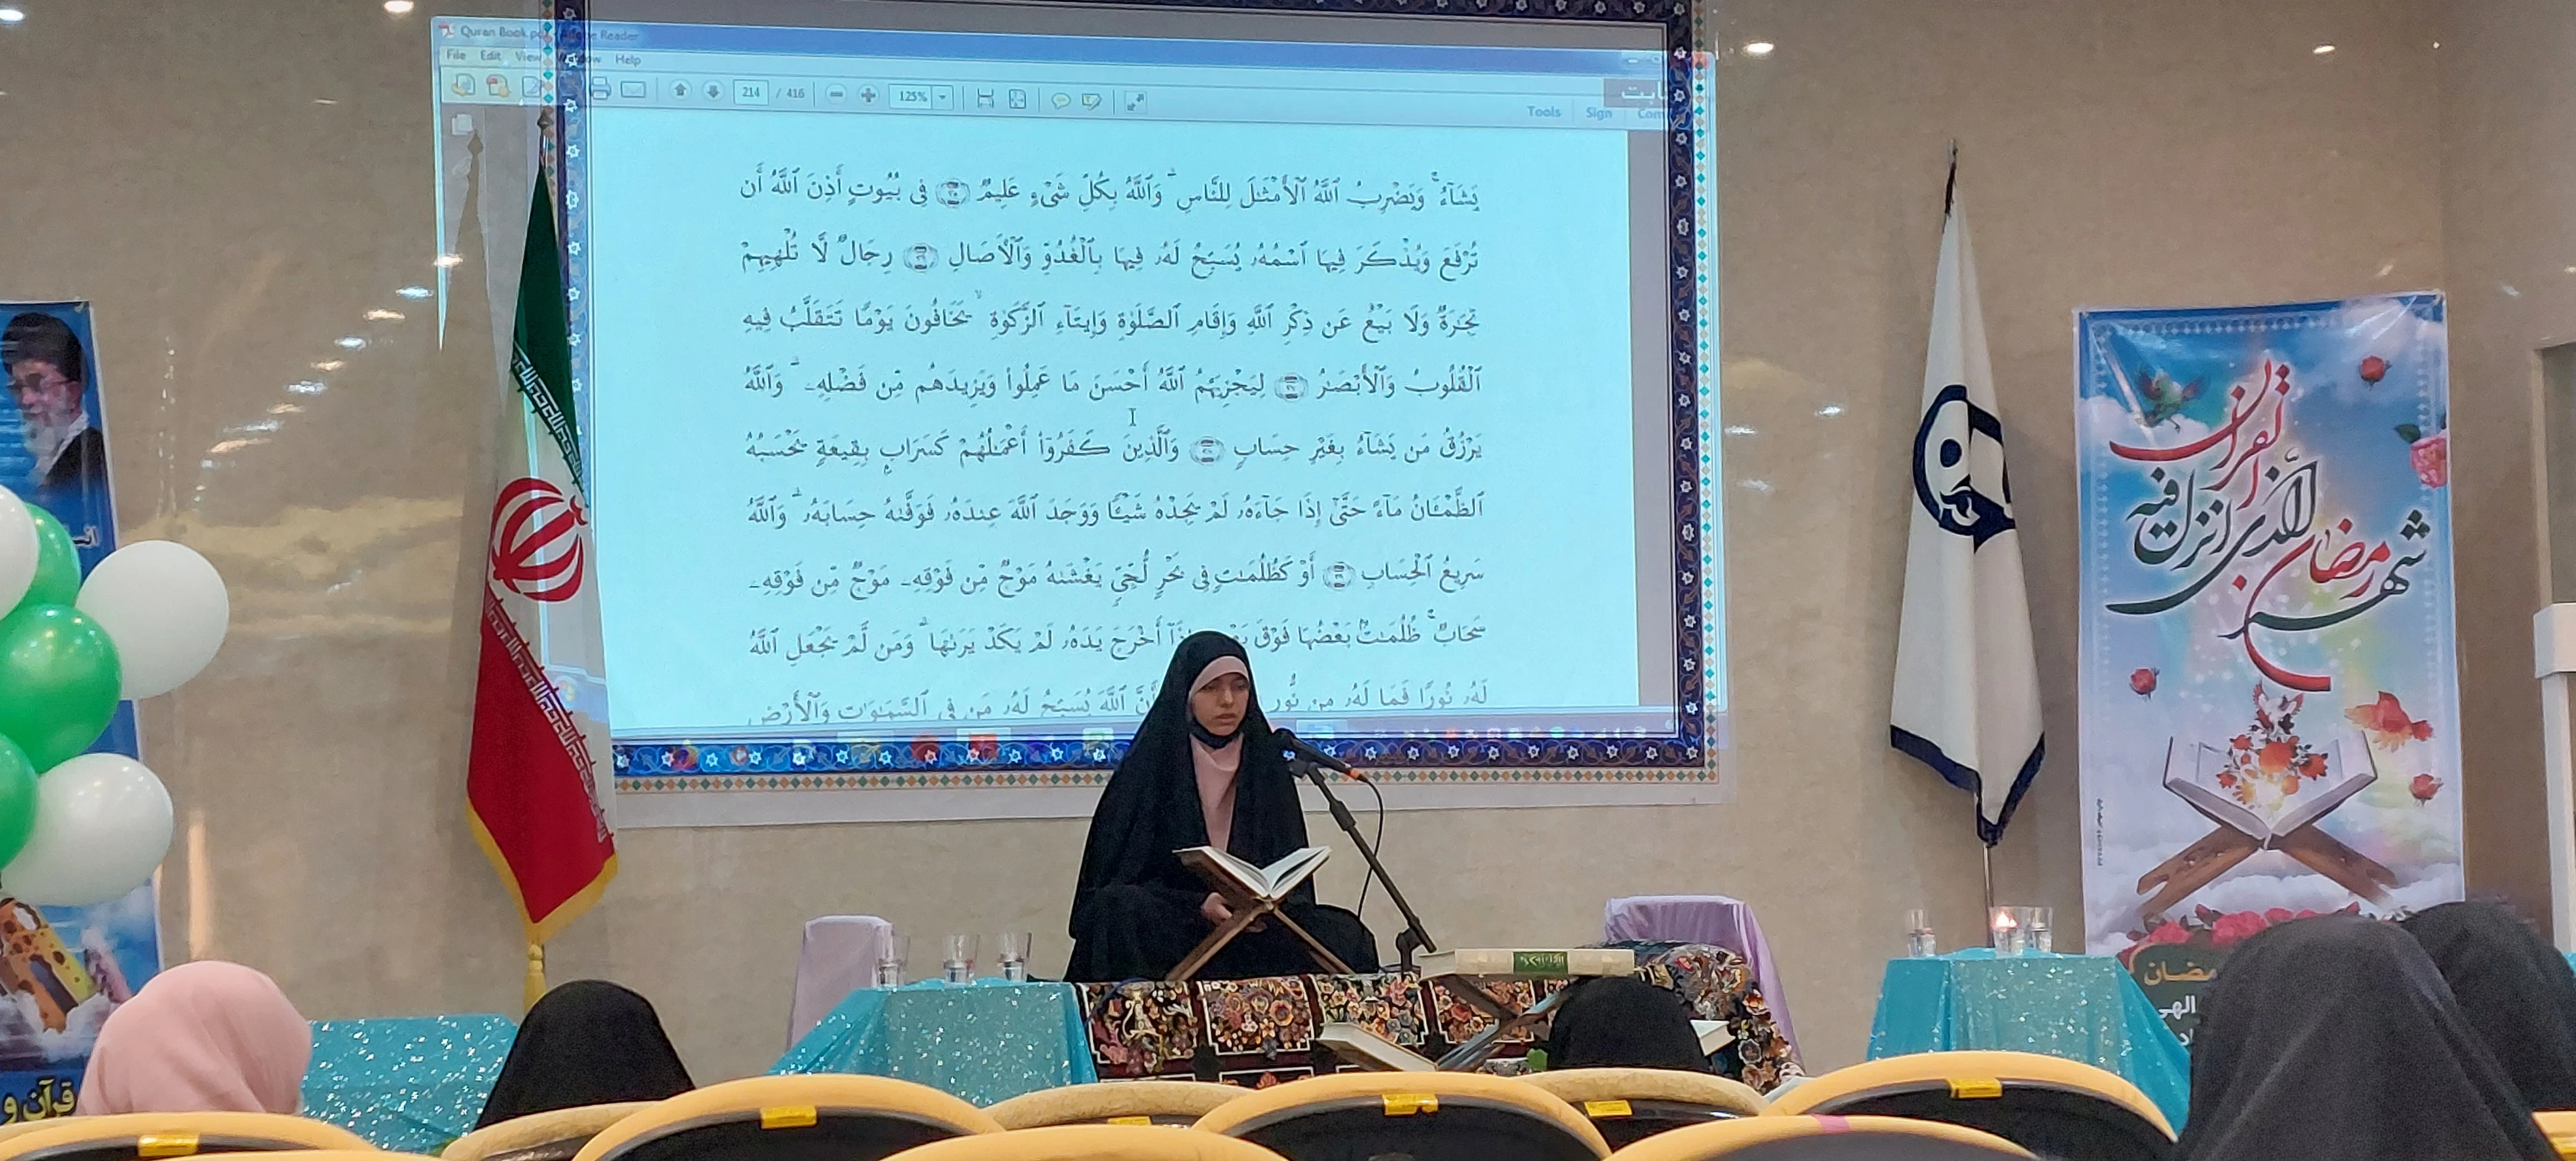 Quran Book.pdf - Adobe Reader
File Edit View Window Help
214 / 416 125%
Tools Sign Com
يَشَآءُ ۚ وَيَضْرِبُ ٱللَّهُ ٱلْأَمْثَـٰلَ لِلنَّاسِ ۗ وَٱللَّهُ بِكُلِّ شَىْءٍ عَلِيمٌ ﴿٣٥﴾ فِى بُيُوتٍ أَذِنَ ٱللَّهُ أَن
تُرْفَعَ وَيُذْكَرَ فِيهَا ٱسْمُهُۥ يُسَبِّحُ لَهُۥ فِيهَا بِٱلْغُدُوِّ وَٱلْـَٔاصَالِ ﴿٣٦﴾ رِجَالٌ لَّا تُلْهِيهِمْ
تِجَـٰرَةٌ وَلَا بَيْعٌ عَن ذِكْرِ ٱللَّهِ وَإِقَامِ ٱلصَّلَوٰةِ وَإِيتَآءِ ٱلزَّكَوٰةِ ۙ يَخَافُونَ يَوْمًا تَتَقَلَّبُ فِيهِ
ٱلْقُلُوبُ وَٱلْأَبْصَـٰرُ ﴿٣٧﴾ لِيَجْزِيَهُمُ ٱللَّهُ أَحْسَنَ مَا عَمِلُوا۟ وَيَزِيدَهُم مِّن فَضْلِهِۦ ۗ وَٱللَّهُ
يَرْزُقُ مَن يَشَآءُ بِغَيْرِ حِسَابٍ ﴿٣٨﴾ وَٱلَّذِينَ كَفَرُوٓا۟ أَعْمَـٰلُهُمْ كَسَرَابٍۭ بِقِيعَةٍ يَحْسَبُهُ
ٱلظَّمْـَٔانُ مَآءً حَتَّىٰٓ إِذَا جَآءَهُۥ لَمْ يَجِدْهُ شَيْـًٔا وَوَجَدَ ٱللَّهَ عِندَهُۥ فَوَفَّىٰهُ حِسَابَهُۥ ۗ وَٱللَّهُ
سَرِيعُ ٱلْحِسَابِ ﴿٣٩﴾ أَوْ كَظُلُمَـٰتٍ فِى بَحْرٍ لُّجِّىٍّ يَغْشَىٰهُ مَوْجٌ مِّن فَوْقِهِۦ مَوْجٌ مِّن فَوْقِهِۦ
سَحَابٌ ۚ ظُلُمَـٰتٌۢ بَعْضُهَا فَوْقَ أَخْرَجَ يَدَهُۥ لَمْ يَكَدْ يَرَىٰهَا ۗ وَمَن لَّمْ يَجْعَلِ ٱللَّهُ
لَهُۥ نُورًا فَمَا لَهُۥ مِن نُّورٍ أَنَّ ٱللَّهَ يُسَبِّحُ لَهُۥ مَن فِى ٱلسَّمَـٰوَٰتِ وَٱلْأَرْضِ
شهر رمضان
الذی انزل فیه
القرآن
الهی
قرآن و